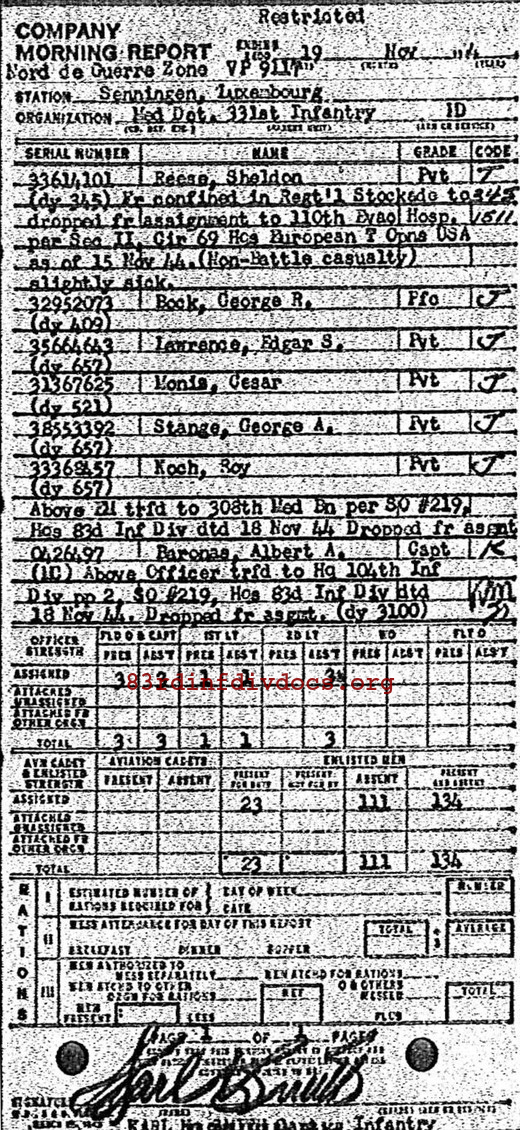 Restricted
COMPANY
MORNING REPORT ENDING 19 Nov 44
Nord de Guerre Zone VP 9117
STATION Senningen, Luxembourg
ORGANIZATION Med Det. 331st Infantry ID
SERIAL NUMBER NAME GRADE CODE
33614101 Reese, Sheldon Pvt T
(dy 345) Fr confined in Regt'l Stockade to 345
dropped fr assignment to 110th Evac Hosp. 1511
per Sec II, Cir 69 Hqs European T Opns USA
as of 15 Nov 44.(Non-Battle casualty)
slightly sick.
32952073 Bock, George R. Pfc J
(dy 409)
35664643 Lawrence, Edgar S. Pvt J
(dy 657)
31367625 Monis, Cesar Pvt J
(dy 521)
38553392 Stange, George A. Pvt J
(dy 657)
Koch, Roy Pvt J
(dy 657)
Above EM trfd to 308th Med Bn per SO #219,
Hqs 83d Inf Div dtd 18 Nov 44 Dropped fr asgmt
0426497 Baronas, Albert A. Capt K
Above Officer trfd to Hq 104th Inf
Div pp 2, SO #219, Hqs 83d Inf Div dtd
18 Nov 44. Dropped fr asgmt. (dy 3100)
OFFICER STRENGTH FLD O & CAPT 1ST LT 2D LT WO FLT O
PRES ABS'T PRES ABS'T PRES ABS'T PRES ABS'T PRES ABS'T
ASSIGNED 3 3 1 1 3
83rdinfdivdocs.org
ATTACHED UNASSIGNED
ATTACHED FR OTHER ORGN
TOTAL 3 3 1 1 3
AVN CADET & ENLISTED STRENGTH AVIATION CADETS ENLISTED MEN
PRESENT ABSENT PRESENT FOR DUTY PRESENT NOT FOR DY ABSENT PRESENT AND ABSENT
ASSIGNED 23 111 134
ATTACHED UNASSIGNED
ATTACHED FR OTHER ORGN
TOTAL 23 111 134
RATIONS
I ESTIMATED NUMBER OF RATIONS REQUIRED FOR DAY OF WEEK DATE NUMBER
II MESS ATTENDANCE FOR DAY OF THIS REPORT TOTAL ÷ 3 AVERAGE
BREAKFAST DINNER SUPPER
III MEN AUTHORIZED TO MESS SEPARATELY MEN ATCHD FOR RATIONS
MEN ATCHD TO OTHER ORGN FOR RATIONS NET O & OTHERS MESSED TOTAL
MEN PRESENT LESS PLUS
PAGE 1 OF 1 PAGES
SIGNATURE
Infantry